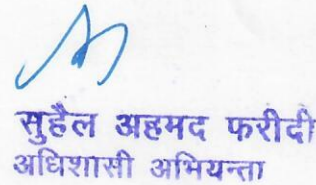 सुहैल अहमद फरीदी
अधिशासी अभियन्ता